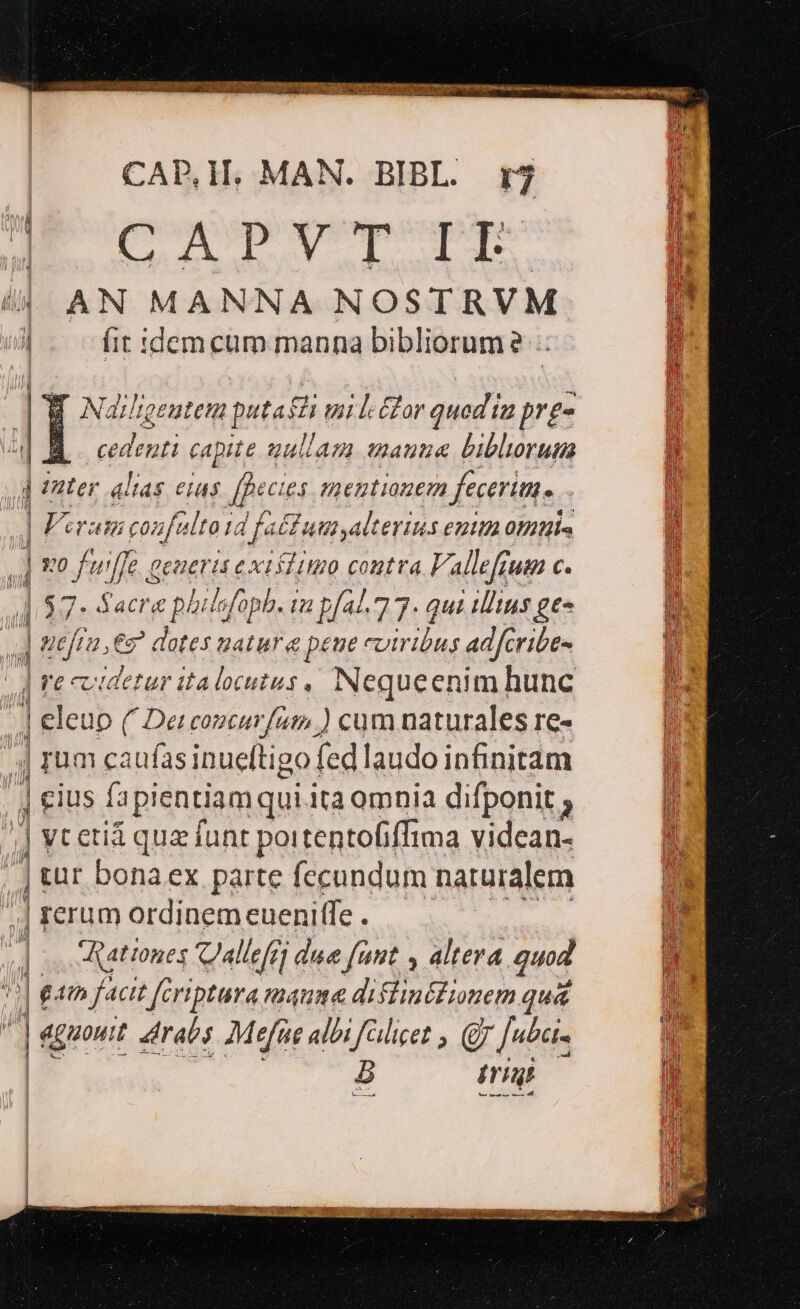 CAP. II. MAN. BIBL. 17
CAPVT II.
AN MANNA NOSTRVM
ſit idem cùm manna bibliorum?
INdiligentem putaſti mi lector quod in præ-
cedenti capite nullam mannæ bibliorum
inter alias eius ſpecies mentionem fecerim.
Verum conſulto id factum, alterius enim omni-
no fuiſſe generis existimo contra Valleſium c.
57. Sacræ philoſoph. in pſal. 77. qui illius ge-
neſin, & dotes naturæ pene viribus adſcribe-
re videtur ita locutus, Neque enim hunc
eleuo ( Dei concurſum ) cum naturales re-
rum cauſas inueſtigo ſed laudo infinitam
eius ſapientiam qui ita omnia diſponit,
vt etiã quæ ſunt portentoſiſſima videan-
tur bona ex parte ſecundum naturalem
rerum ordinem eueniſſe.
Rationes Valleſij duæ ſunt, altera quod
eam facit ſcriptura mannæ distinctionem quã
agnouit Arabs Meſue albi ſcilicet, & ſubci-
B trini